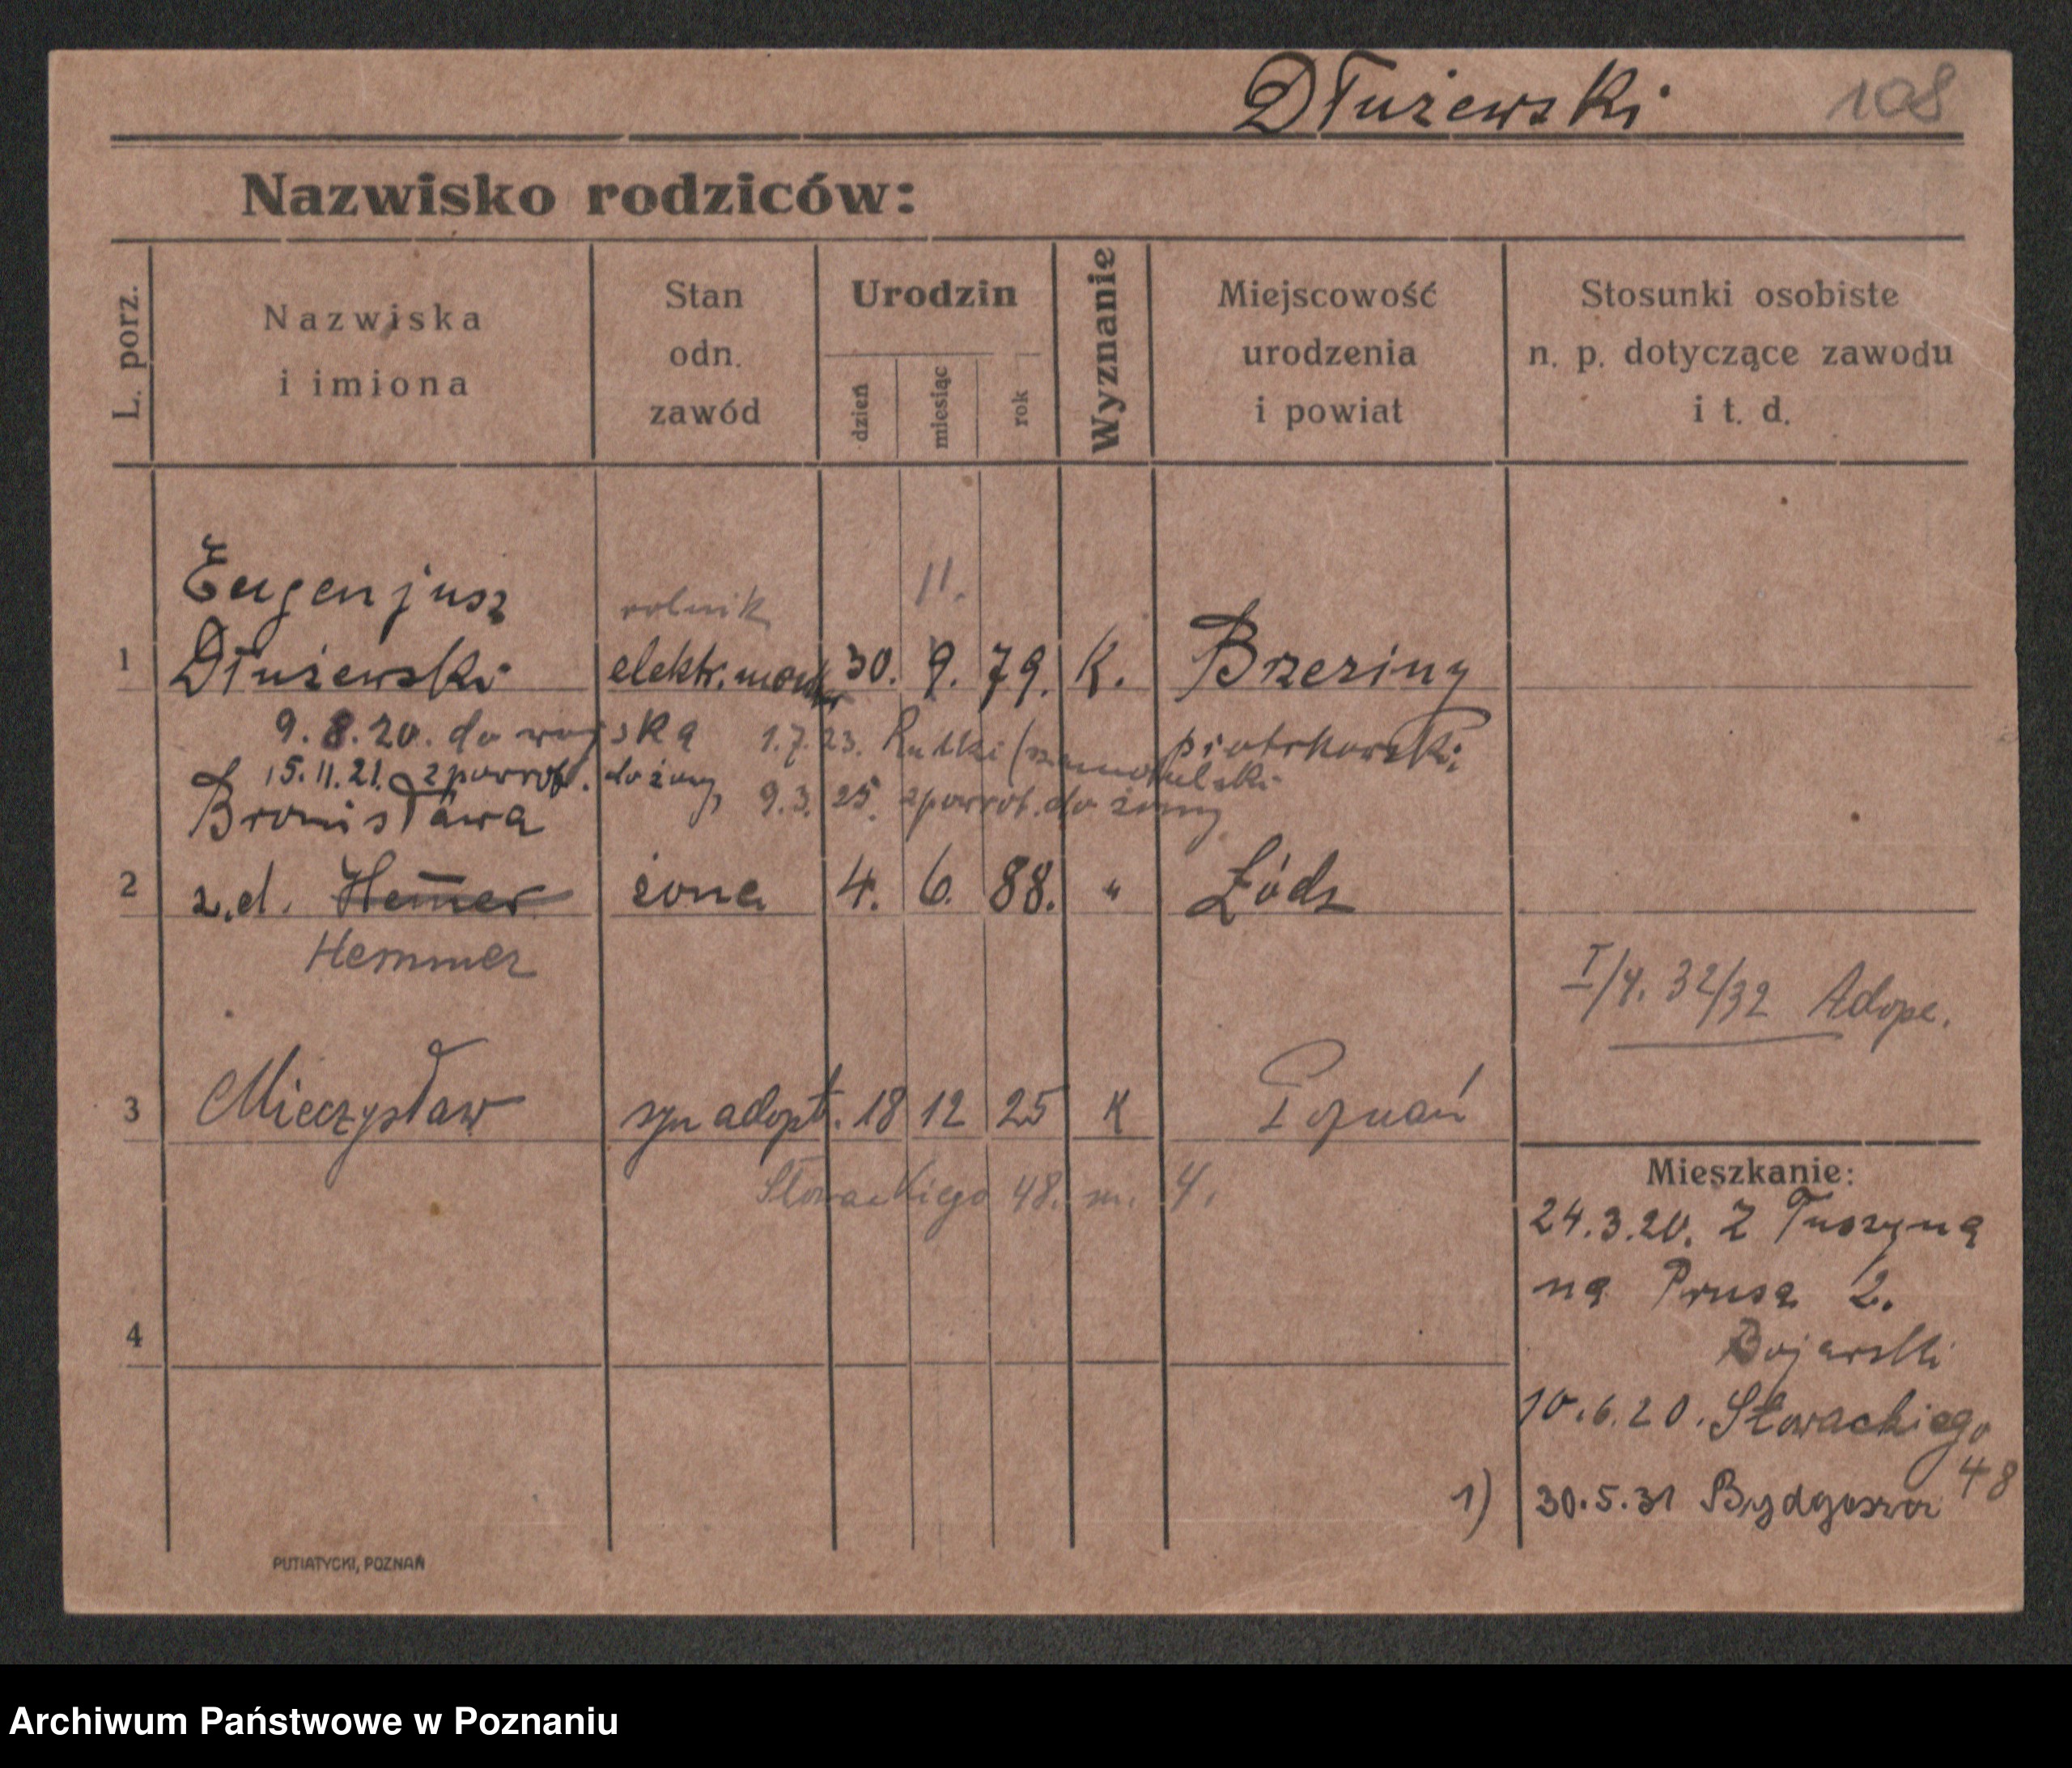 Dłużewski 108
Nazwisko rodziców:
L. porz.
Nazwiska
i imiona
Stan
odn.
zawód
Urodzin
dzień
miesiąc
rok
Wyznanie
Miejscowość
urodzenia
i powiat
Stosunki osobiste
n. p. dotyczące zawodu
i t. d.
Eugenjusz
rolnik 11.
1 Dłużewski elektr. 30. 9. 79. K. Brzeziny
9.8.20. do wojska 1.7.23. Rudki (szamotulski piotrkowski
15.11.21. zpowrot. do żony, 9.3.25. zpowrot. do żony
Bronisława
2 z.d. Hemer żona 4. 6. 88. " Łódz
Hemmer
I/4. 32/32 Adopc.
3 Mieczysław syn adopt. 18 12 25 K Poznań
Słowackiego 48. m. 4.
4
Mieszkanie:
24.3.20. Z Tuszyna
na Prusa 2.
Bojarski
10.6.20. Słowackiego
48
1) 30.5.31 Bydgoszcz
PUTIATYCKI, POZNAŃ
Archiwum Państwowe w Poznaniu